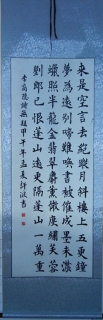 來是空言去絕蹤月斜樓上五更鐘
夢為遠別啼難喚書被催成墨未濃
蠟照半籠金翡翠麝熏微度繡芙蓉
劉郎已恨蓬山遠更隔蓬山一萬重
李商隱詩無題甲午年孟夏許波書